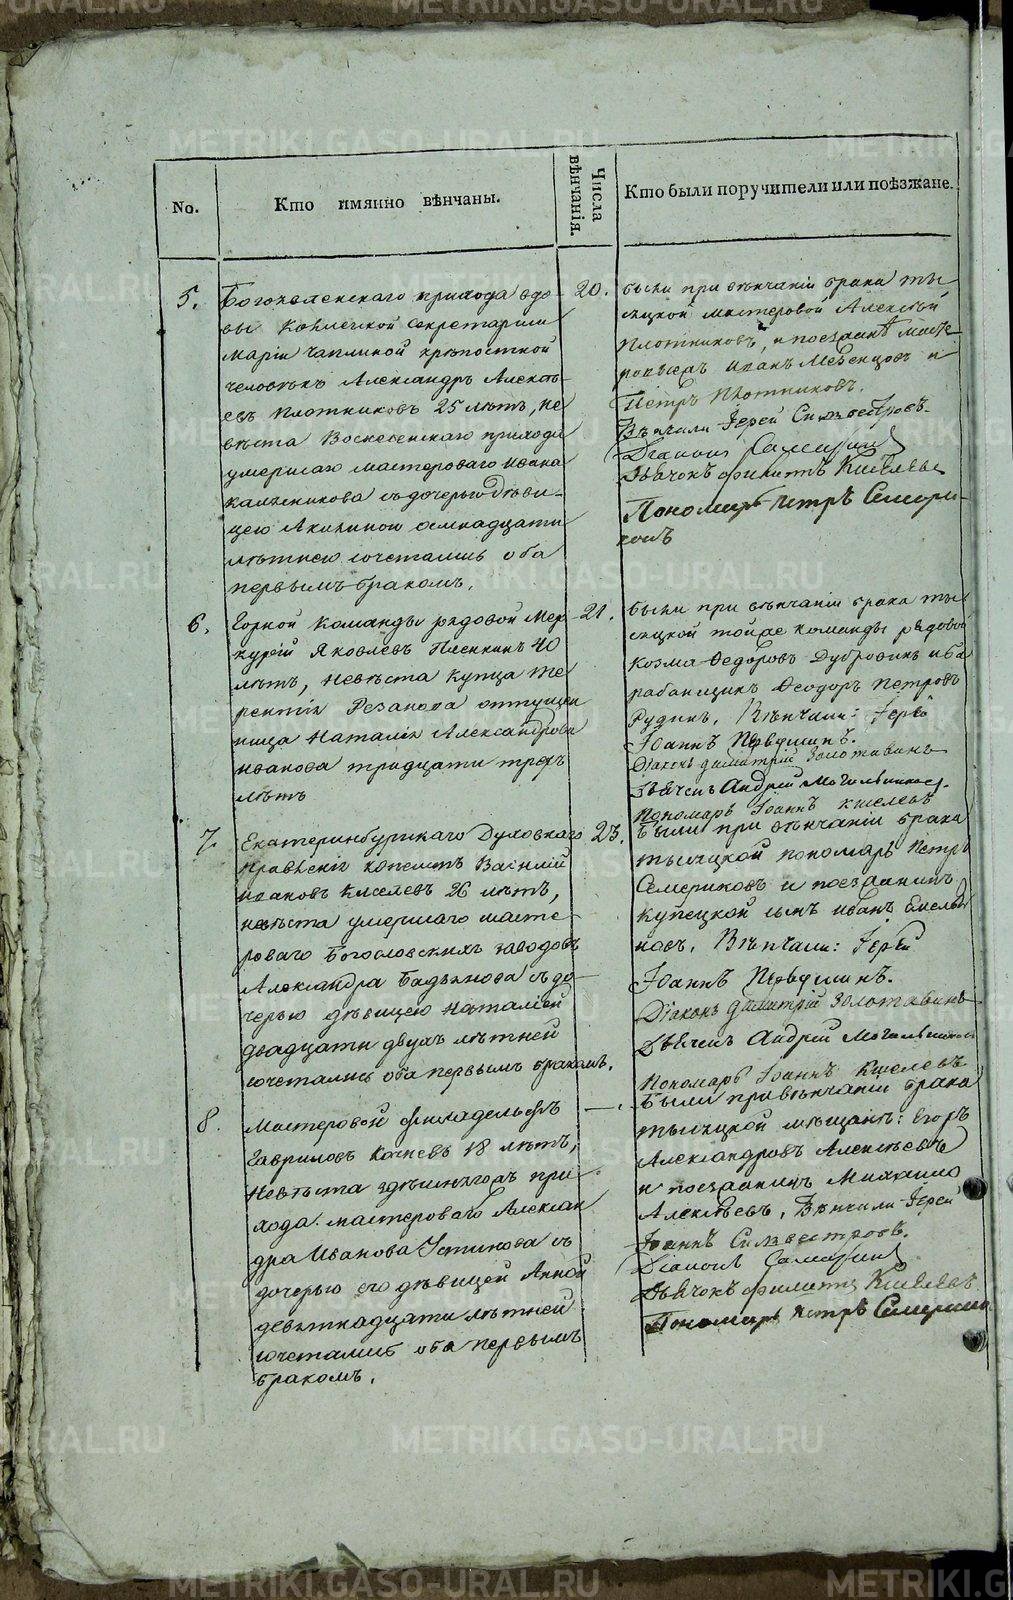 METRIKI.GASO-URAL.RU
No.
Кто имянно вѣнчаны.
Числа вѣнчанія.
Кто были поручители или поѣзжане.
5.
Богоявленскаго прихода вдо-
вы Коллежской Секретарши
Маріи Чаплиной крѣпостной
человѣкъ Александръ Алексѣ-
евъ Плотниковъ 25 лѣтъ, не
вѣста Воскресенскаго прихода
умершаго мастероваго Ивана
Калашникова съ дочерью дѣви-
цею Акилиною осмнадцати
лѣтнею сочетались оба
первымъ бракомъ.
20.
были при вѣнчаніи брака ты
сяцкой мастеровой Алексѣй
Плотниковъ, и поезжанѣ Масте-
ровыеръ Иванъ Мезенцовъ и
Петръ Плотниковъ.
Вѣнчали Іерей Сильвестровъ.
Діаконъ
Дьячокъ Филиппъ Киселевъ
Пономарь Петръ Семери-
ковъ
6.
Горной Команды рядовой Мер
курій Яковлевъ Пленкинъ 40
лѣтъ, невѣста купца Те
рентія Резанова отпущен
ница Наталія Александрова
Иванова тридцати трехъ
лѣтъ
21.
были при вѣнчаніи брака ты
сяцкой тойже команды рядовой
Козма Федоровъ Дубровинъ и ба
рабанщикъ Феодоръ Петровъ
Рудинъ. Вѣнчали: Іерей
Іоаннъ Первушинъ.
Діаконъ Димитрій Золотавинъ
Дьячекъ Андрей Могильниковъ.
Пономарь Іоаннъ Киселевъ
7.
Екатеринбургскаго Духовнаго
Правленія копеистъ Василій
Ивановъ Киселевъ 26 лѣтъ,
невѣста умершаго масте-
роваго Богословскихъ заводовъ
Александра Бадьянова съ до-
черью дѣвицею Наталіей
двадцати двухъ лѣтней
сочетались оба первымъ бракомъ.
23.
Были при вѣнчаніи брака
тысяцкой пономарь Петръ
Семериковъ и поезжанинъ
купецкой сынъ Иванъ Емелья
новъ. Вѣнчали: Іерей
Іоаннъ Первушинъ.
Діаконъ Димитрій Золотавинъ
Дьячекъ Андрей Могильниковъ
Пономарь Іоаннъ Киселевъ
8.
Мастеровой Филадельфъ
Гавриловъ Кочневъ 18 лѣтъ,
невѣста здѣшняго прихода
мастероваго Алексан
дра Иванова Устинова съ
дочерью его дѣвицей Анной
девятнадцати лѣтней
сочетались оба первымъ
бракомъ.
—
Были при вѣнчаніи брака
тысяцкой мѣщанинъ: Егоръ
Александровъ Алексѣевъ
и поезжанинъ Михаило
Алексѣевъ. Вѣнчали Іерей
Іоаннъ Сильвестровъ.
Діаконъ
Дьячокъ Филиппъ Киселевъ
Пономарь Петръ Семериковъ